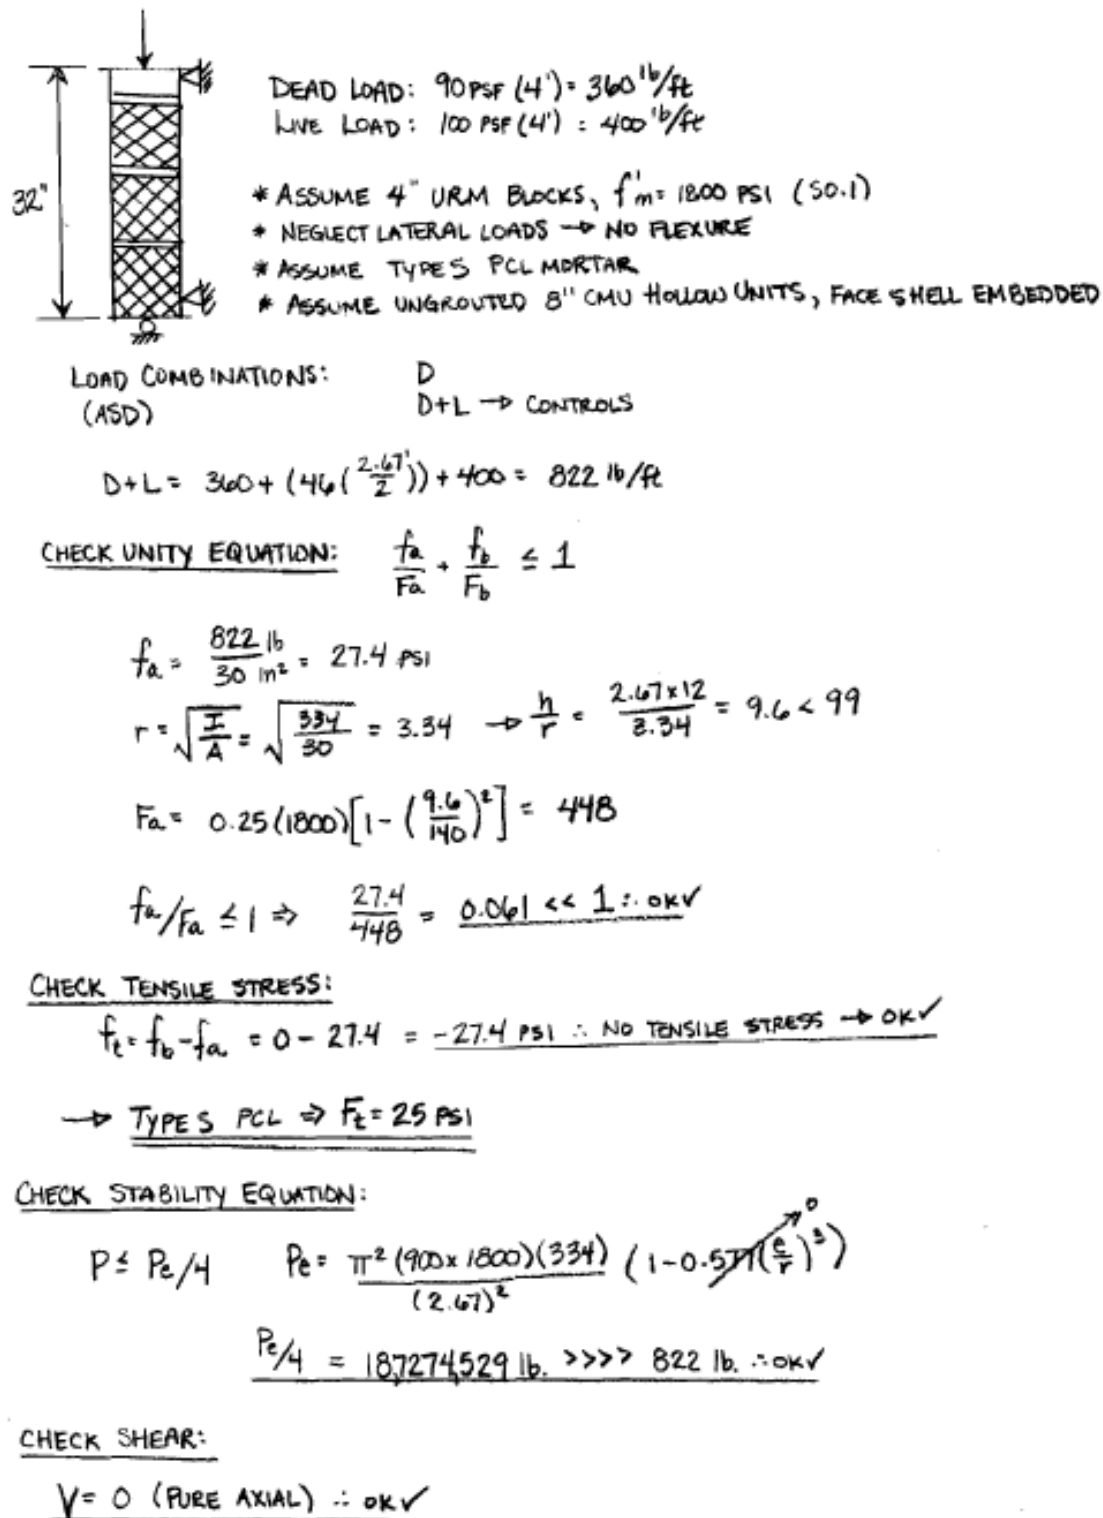 DEAD LOAD: 90 PSF (4') = 360 lb/ft
LIVE LOAD: 100 PSF (4') = 400 lb/ft
32"
* ASSUME 4" URM BLOCKS, f'm = 1800 PSI (SO.1)
* NEGLECT LATERAL LOADS → NO FLEXURE
* ASSUME TYPE S PCL MORTAR
* ASSUME UNGROUTED 8" CMU HOLLOW UNITS, FACE SHELL EMBEDDED
LOAD COMBINATIONS: D
(ASD) D+L → CONTROLS
D+L = 360 + (46(2.67'/2)) + 400 = 822 lb/ft
CHECK UNITY EQUATION: fa/Fa + fb/Fb ≤ 1
fa = 822 lb/30 in² = 27.4 PSI
r = √(I/A) = √(334/30) = 3.34 → h/r = 2.67x12/3.34 = 9.6 < 99
Fa = 0.25(1800)[1-(9.6/140)²] = 448
fa/Fa ≤ 1 ⇒ 27.4/448 = 0.061 << 1 ∴ OK✓
CHECK TENSILE STRESS:
ft = fb - fa = 0 - 27.4 = -27.4 PSI ∴ NO TENSILE STRESS → OK✓
→ TYPE S PCL ⇒ Ft = 25 PSI
CHECK STABILITY EQUATION:
P ≤ Pe/4 Pe = π²(900x1800)(334)/(2.67)² (1-0.577(e/r)³) 0
Pe/4 = 187,274,529 lb. >>>> 822 lb. ∴ OK✓
CHECK SHEAR:
V = 0 (PURE AXIAL) ∴ OK✓